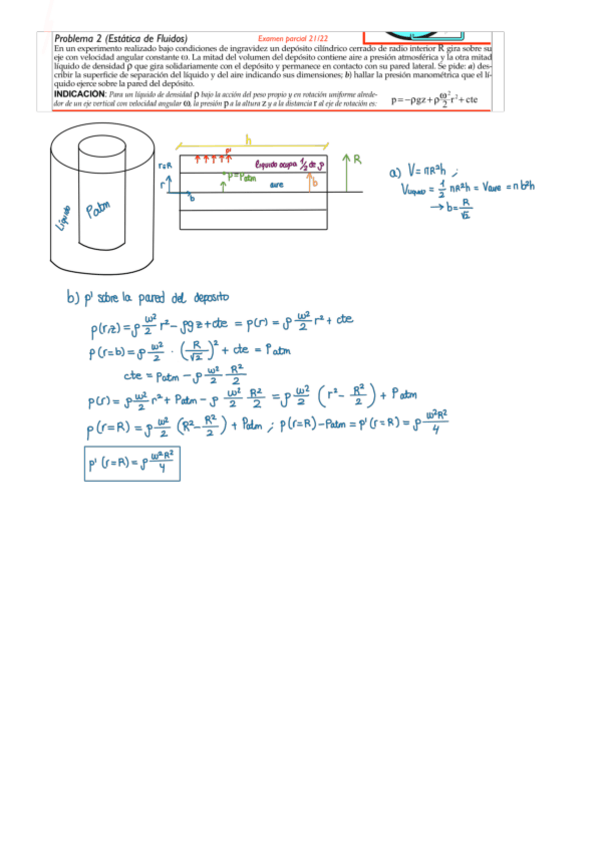 Problema 2 (Estática de Fluidos) Examen parcial 21/22
En un experimento realizado bajo condiciones de ingravidez un depósito cilíndrico cerrado de radio interior R gira sobre su
eje con velocidad angular constante ω. La mitad del volumen del depósito contiene aire a presión atmosférica y la otra mitad
líquido de densidad ρ que gira solidariamente con el depósito y permanece en contacto con su pared lateral. Se pide: a) des-
cribir la superficie de separación del líquido y del aire indicando sus dimensiones; b) hallar la presión manométrica que el lí-
quido ejerce sobre la pared del depósito.
INDICACION: Para un líquido de densidad ρ bajo la acción del peso propio y en rotación uniforme alrede-
dor de un eje vertical con velocidad angular ω, la presión p a la altura z y a la distancia r al eje de rotación es:
p=-ρgz+ρ ω²/2 r²+cte
Líquido
Patm
h
p'
r=R
r
b
líquido ocupa 1/2 de
p=Patm
aire
b
R
a) V= πR²h ;
Vlíquido = 1/2 πR²h = Vaire = πb²h
→ b= R/√2
b) p' sobre la pared del deposito
p(r,z) = ρ ω²/2 r² - ρgz+cte = p(r) = ρ ω²/2 r² + cte
p(r=b) = ρ ω²/2 · (R/√2)² + cte = Patm
cte = Patm - ρ ω²/2 R²/2
p(r) = ρ ω²/2 r² + Patm - ρ ω²/2 R²/2 = ρ ω²/2 (r² - R²/2) + Patm
p(r=R) = ρ ω²/2 (R² - R²/2) + Patm ; p(r=R) - Patm = p'(r=R) = ρ ω²R²/4
p' (r=R) = ρ ω²R²/4